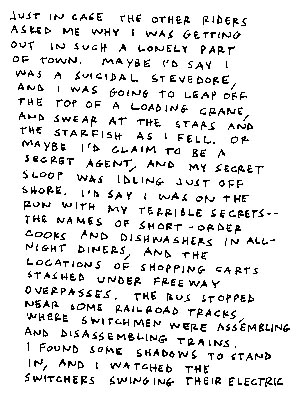 JUST IN CASE THE OTHER RIDERS
ASKED ME WHY I WAS GETTING
OUT IN SUCH A LONELY PART
OF TOWN. MAYBE I'D SAY I
WAS A SUICIDAL STEVEDORE,
AND I WAS GOING TO LEAP OFF
THE TOP OF A LOADING CRANE,
AND SWEAR AT THE STARS AND
THE STARFISH AS I FELL. OR
MAYBE I'D CLAIM TO BE A
SECRET AGENT, AND MY SECRET
SLOOP WAS IDLING JUST OFF
SHORE. I'D SAY I WAS ON THE
RUN WITH MY TERRIBLE SECRETS--
THE NAMES OF SHORT-ORDER
COOKS AND DISHWASHERS IN ALL-
NIGHT DINERS, AND THE
LOCATIONS OF SHOPPING CARTS
STASHED UNDER FREEWAY
OVERPASSES. THE BUS STOPPED
NEAR SOME RAILROAD TRACKS,
WHERE SWITCHMEN WERE ASSEMBLING
AND DISASSEMBLING TRAINS.
I FOUND SOME SHADOWS TO STAND
IN, AND I WATCHED THE
SWITCHERS SWINGING THEIR ELECTRIC